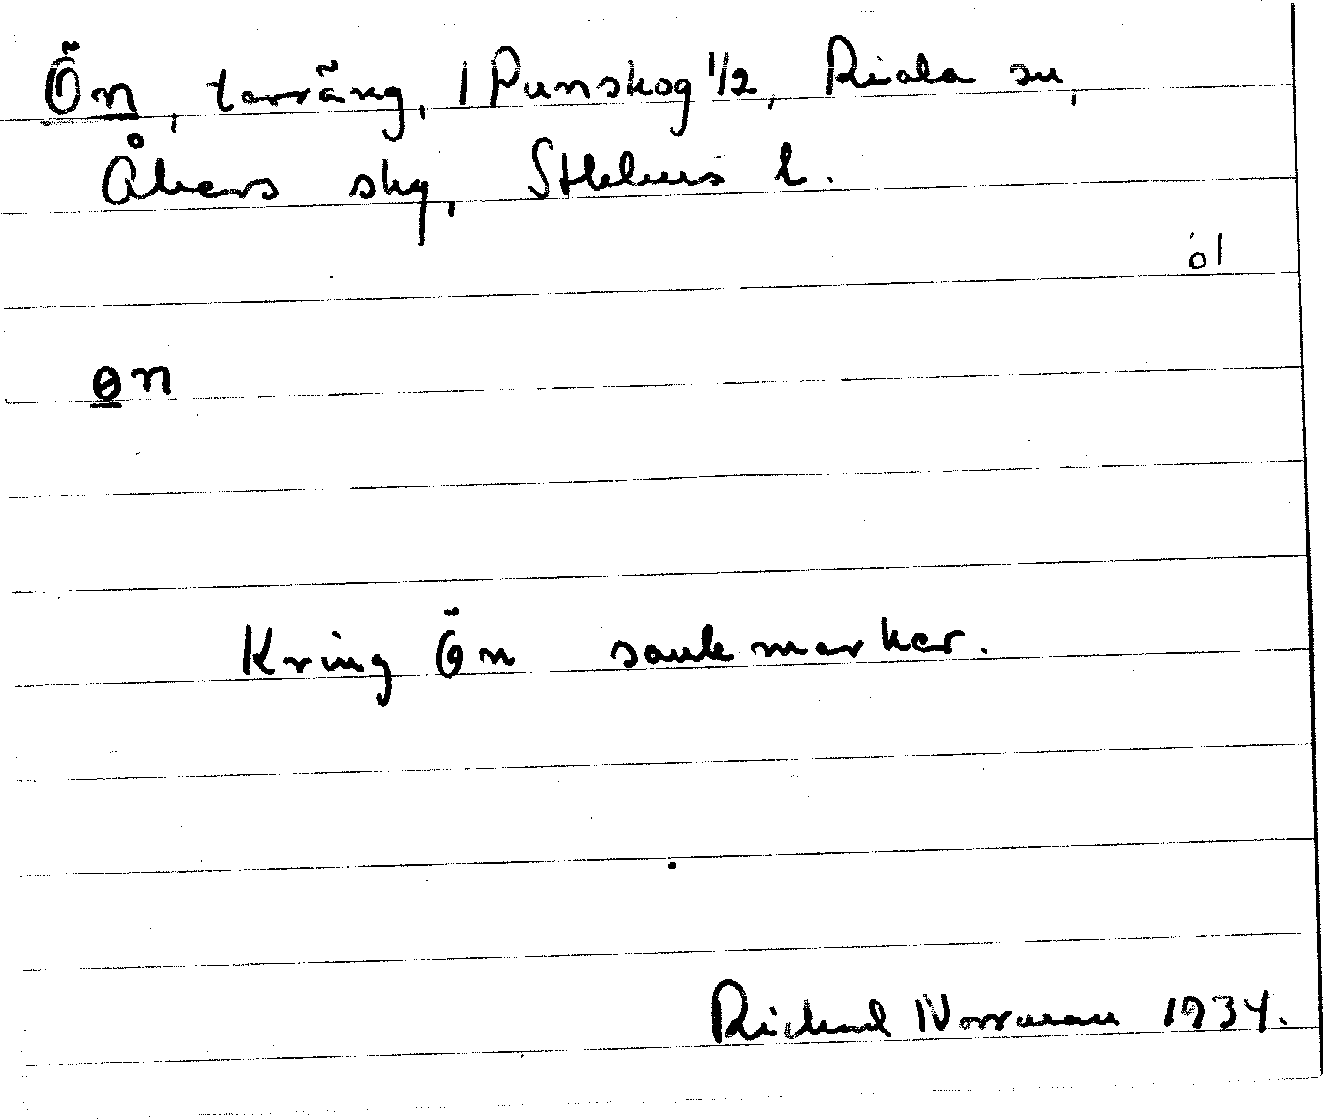 Ön, terräng, 1 Punskog 1/2, Riala sn,
Åkers skg, Sthlms l.
öl
ɵn
Kring Ön sankmarker.
Rickard Norrman 1934.